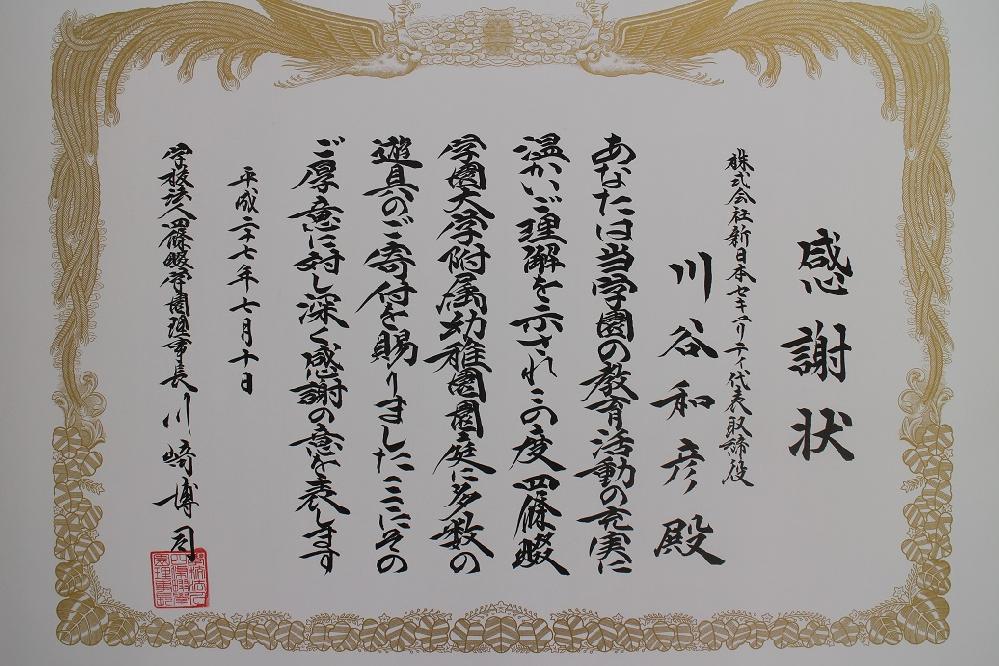 感謝状
株式会社新日本セキュリティ代表取締役
川谷和彦殿
あなたは当学園の教育活動の充実に
温かいご理解を示されこの度四條畷
学園大学附属幼稚園園庭に多数の
遊具のご寄付を賜りましたここにその
ご厚意に対し深く感謝の意を表します
平成二十七年七月十日
学校法人四條畷学園理事長川崎博司